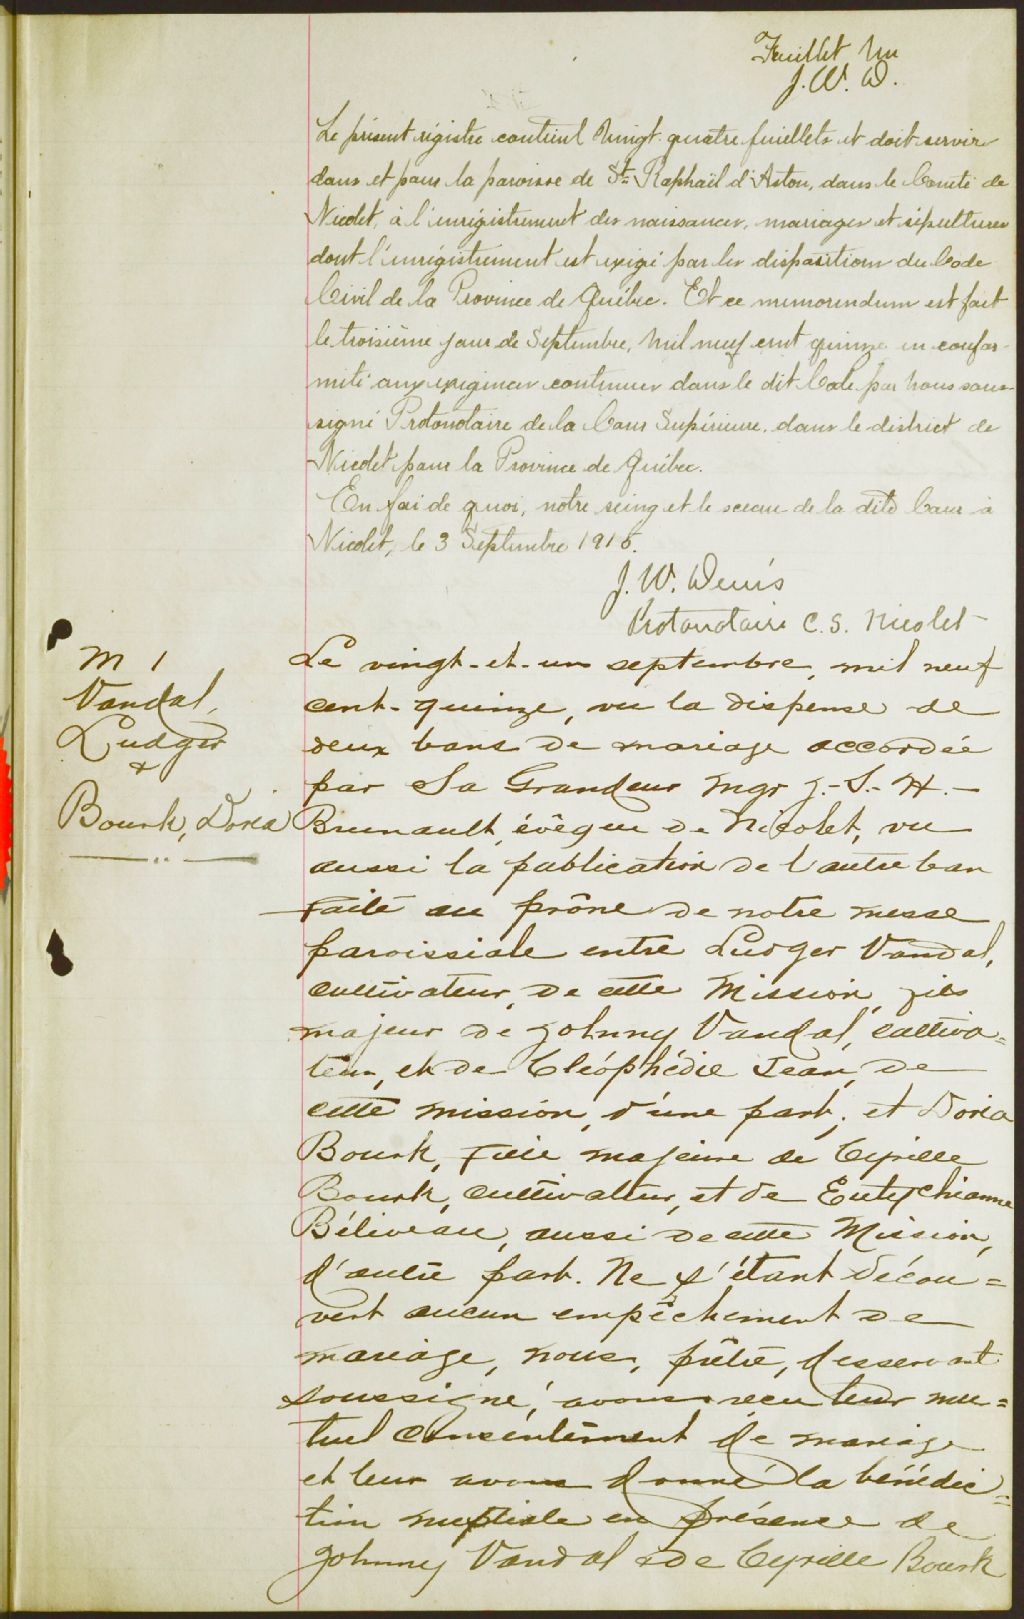 Feuillet Un
J. W. D.
Le présent régistre contient Vingt quatre feuillets et doit servir
dans et pour la paroisse de St Raphaël d'Aston, dans le Comté de
Nicolet, à l'enrégistrement des naissances, mariages et sépultures
dont l'enrégistrement est exigé par les dispositions du Code
Civil de la Province de Québec. Et ce memorendum est fait
le troisième jour de Septembre, Mil neuf cent quinze en confor-
mité aux exigences contenues dans le dit Code par Nous sous-
signé Protonotaire de la Cour Supérieure, dans le district de
Nicolet pour la Province de Québec.
En foi de quoi, notre seing et le sceau de la dite Cour à
Nicolet, le 3 Septembre 1915.
J. W. Denis
Protonotaire C. S. Nicolet
M 1
Vandal,
Ludger
&
Bourk, Doria
Le vingt-et-un septembre, mil neuf
cent-quinze, vu la dispense de
deux bans de mariage accordée
par Sa Grandeur Mgr J.-S.-H.-
Brunault, évêque de Nicolet, vu
aussi la publication de l'autre ban
faite au prône de notre messe
paroissiale entre Ludger Vandal,
cultivateur, de cette Mission, fils
majeur de Johnny Vandal, cultiva=
teur, et de Cléophédie Jean, de
cette mission, d'une part; et Doria
Bourk, fille majeure de Cyrille
Bourk, cultivateur, et de Eutychianne
Béliveau, aussi de cette Mission,
d'autre part. Ne s'étant décou=
vert aucun empêchement de
mariage, nous, prêtre, desservant
soussigné, avons reçu leur mu=
tuel consentement de mariage
et leur avons donné la bénédic=
tion nuptiale en présence de
Johnny Vandal & de Cyrille Bourk